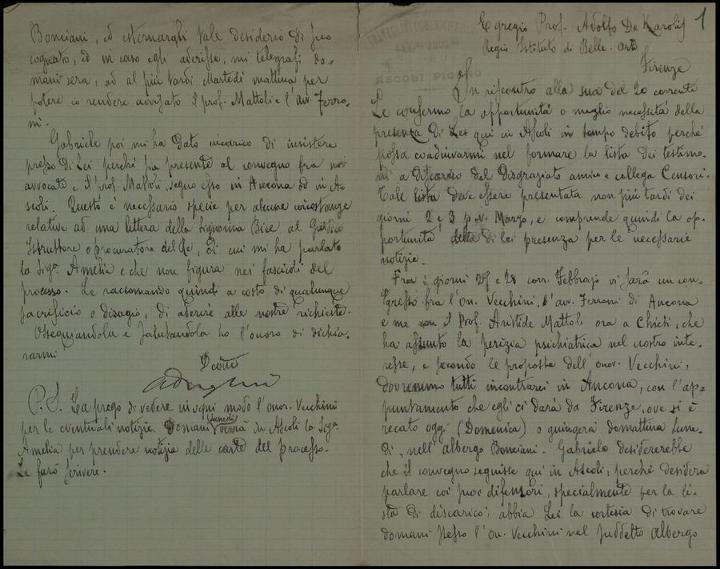 1
Egregio Prof. Adolfo De Karolis
Regio Istituto di Belle Arti
Firenze
ASCOLI PICENO
In riscontro alla sua del 20 corrente
Le confermo la opportunità o meglio necessità della
presenza di Lei qui in Ascoli in tempo debito perché
possa coadiuvarmi nel formare la lista dei testimo-
ni a discarico del disgraziato amico e collega Censori.
Tale lista deve essere presentata non più tardi dei
giorni 2 e 3 p.v. Marzo, e comprende quindi la op-
portunità della di lei presenza per le necessarie
notizie.
Fra i giorni 27 e 28 corr. Febbrajo vi sarà un con-
gresso fra l'on. Vecchini, l'avv. Ferroni di Ancona
e me con il Prof. Aristide Mattoli ora a Chieti, che
ha assunto la perizia psichiatrica nel nostro inte-
resse, e secondo le proposte dell'onor. Vecchini,
dovremmo tutti incontrarci in Ancona, con l'ap-
puntamento che egli ci darà da Firenze, ove si è
recato oggi (Domenica) o giungerà domattina lune-
di, nell'albergo Bonciani. Gabriele desidererebbe
che il convegno seguisse qui in Ascoli, perché desidera
parlare coi suoi difensori, specialmente per la li-
sta di discarico; abbia Lei la cortesia di trovare
domani stesso l'on. Vecchini nel suddetto albergo
Bonciani, ed esternarghi tale desiderio di suo
cognato, ed in caso egli aderisse, mi telegrafi do-
mani sera, od al più tardi Martedì mattina per
potere io rendere avvisato il prof. Mattoli e l'avv. Ferro-
ni.
Gabriele poi mi ha dato incarico di insistere
presso di Lei perché sia presente al convegno fra noi
avvocati e il prof. Mattoli, segua esso in Ancona od in As-
coli. Questo è necessario specie per alcune circostanze
relative ad una lettera della Signorina Bice al Giudice
Istruttore o procuratore del Re, di cui mi ha parlato
la Sig.ra Amelia e che non figura nei fascicoli del
processo. Le raccomando quindi a costo di qualunque
sacrificio o disagio, di aderire alle nostre richieste.
Ossequiandola e salutandola ho l'onore di dichia-
rarmi
P.S. La prego di vedere in ogni modo l'onor. Vecchini
per le eventuali notizie. Domani verrà in Ascoli la Sig.ra
Amelia per prendere notizia delle carte del processo.
Le farò scrivere.